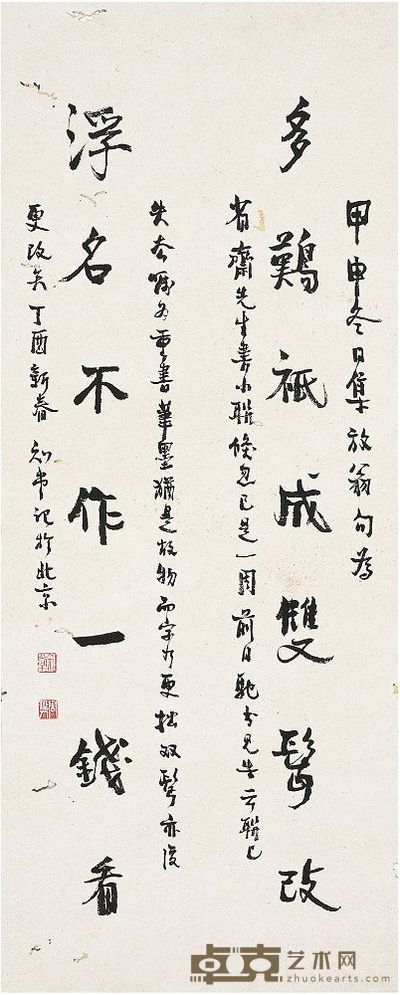 甲申冬日集放翁句為
多難祇成雙鬂改
省齋先生書小聯倏忽已是一周前日馳書見告云聯已
失去囑為重書筆墨猶是故物而字乃更拙雙鬂亦復
浮名不作一錢看
更改矣丁酉新春知堂記於北京
卓克艺术网
zhuokearts.com